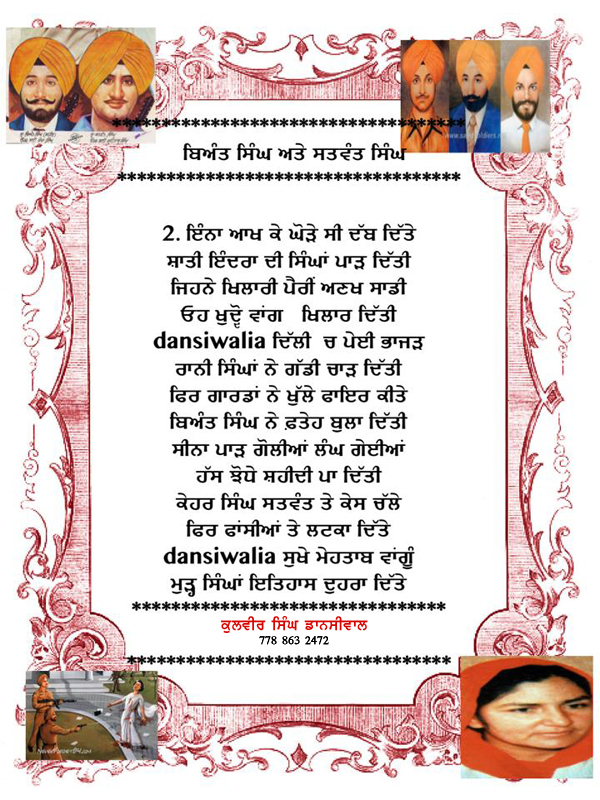 ***********************************
ਬਿਅੰਤ ਸਿੰਘ ਅਤੇ ਸਤਵੰਤ ਸਿੰਘ
***********************************
2. ਇੰਨਾ ਆਖ ਕੇ ਘੋੜੇ ਸੀ ਦੱਬ ਦਿੱਤੇ
ਸ਼ਾਤੀ ਇੰਦਰਾ ਦੀ ਸਿੰਘਾਂ ਪਾੜ ਦਿੱਤੀ
ਜਿਹਨੇ ਖਿਲਾਰੀ ਪੈਰੀਂ ਅਣਖ ਸਾਡੀ
ਓਹ ਖੁਦੋ ਵਾਂਗ ਖਿਲਾਰ ਦਿੱਤੀ
dansiwalia ਦਿੱਲੀ ਚ ਪੇਈ ਭਾਜੜ
ਰਾਨੀ ਸਿੰਘਾਂ ਨੇ ਗੱਡੀ ਚਾੜ ਦਿੱਤੀ
ਫਿਰ ਗਾਰਡਾਂ ਨੇ ਖੁੱਲੇ ਫਾਇਰ ਕੀਤੇ
ਬਿਅੰਤ ਸਿੰਘ ਨੇ ਫ਼ਤੇਹ ਬੁਲਾ ਦਿੱਤੀ
ਸੀਨਾ ਪਾੜ ਗੋਲੀਆਂ ਲੰਘ ਗੇਈਆਂ
ਹੱਸ ਝੋਧੇ ਸ਼ਹੀਦੀ ਪਾ ਦਿੱਤੀ
ਕੇਹਰ ਸਿੰਘ ਸਤਵੰਤ ਤੇ ਕੇਸ ਚੱਲੇ
ਫਿਰ ਫਾਂਸੀਆਂ ਤੇ ਲਟਕਾ ਦਿੱਤੇ
dansiwalia ਸੁਖੇ ਮੇਹਤਾਬ ਵਾਂਗੂੰ
ਮੁੜ੍ਹ ਸਿੰਘਾਂ ਇਤਿਹਾਸ ਦੁਹਰਾ ਦਿੱਤੇ
********************************
ਕੁਲਵੀਰ ਸਿੰਘ ਡਾਨਸੀਵਾਲ
778 863 2472
*********************************